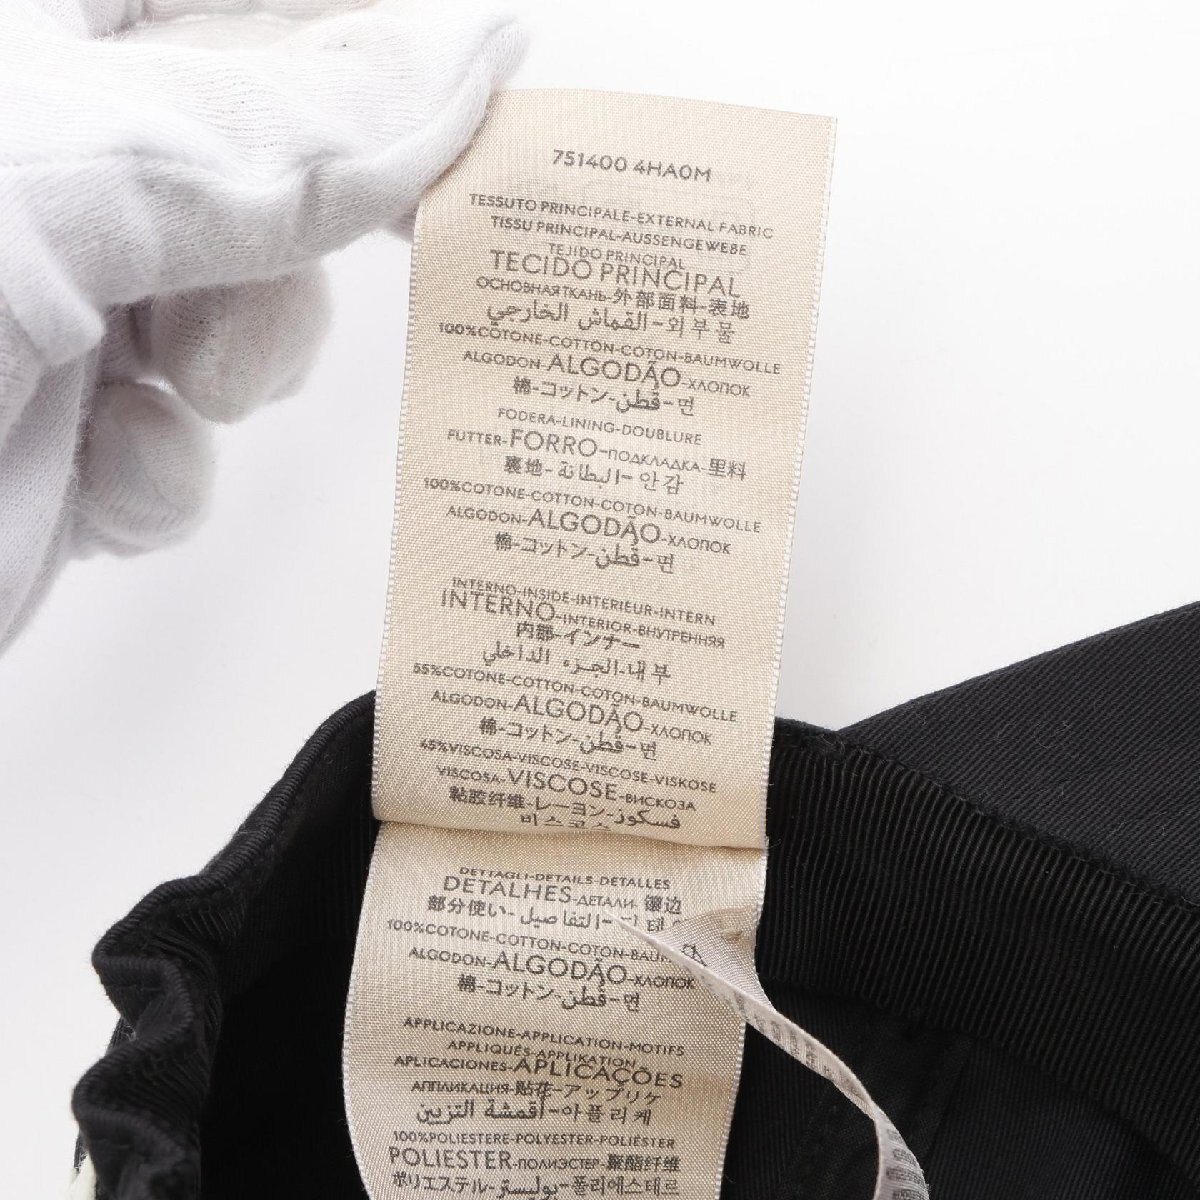 751400 4HA0M
TESSUTO PRINCIPALE-EXTERNAL FABRIC
TISSU PRINCIPAL-AUSSENGEWEBE
TEJIDO PRINCIPAL
TECIDO PRINCIPAL
ОСНОВНАЯ ТКАНЬ-外部面料-表地
القماش الخارجي-외부 물
100%COTONE-COTTON-COTON-BAUMWOLLE
ALGODON-ALGODÃO-ХЛОПОК
棉-コットン-قطن-면
FODERA-LINING-DOUBLURE
FUTTER-FORRO-ПОДКЛАДКА-里料
裏地-البطانة-안감
100%COTONE-COTTON-COTON-BAUMWOLLE
ALGODON-ALGODÃO-ХЛОПОК
棉-コットン-قطن-면
INTERNO-INSIDE-INTERIEUR-INTERN
INTERNO-INTERIOR-ВНУТРЕННЯЯ
内部-インナー
الجزء الداخلي-내부
55%COTONE-COTTON-COTON-BAUMWOLLE
ALGODON-ALGODÃO-ХЛОПОК
棉-コットン-قطن-면
45%VISCOSA-VISCOSE-VISCOSE-VISKOSE
VISCOSA-VISCOSE-ВИСКОЗА
粘胶纤维-レーヨン-فسكوز
비스코스
DETTAGLI-DETAILS-DETALLES
DETALHES-ДЕТАЛИ-镶边
部分使い-التفاصيل
100%COTONE-COTTON-COTON-
ALGODON-ALGODÃO-ХЛОПОК
棉-コットン-قطن-면
APPLICAZIONE-APPLICATION-MOTIFS
APPLIQUÉS-APPLIKATION
APLICACIONES-APLICAÇÕES
АППЛИКАЦИЯ-贴花-アップリケ
أقمشة التزيين-아플리케
100%POLIESTERE-POLYESTER-POLIÉSTER
POLIESTER-ПОЛИЭСТЕР-聚酯纤维
ポリエステル-بوليستر-폴리에스테르